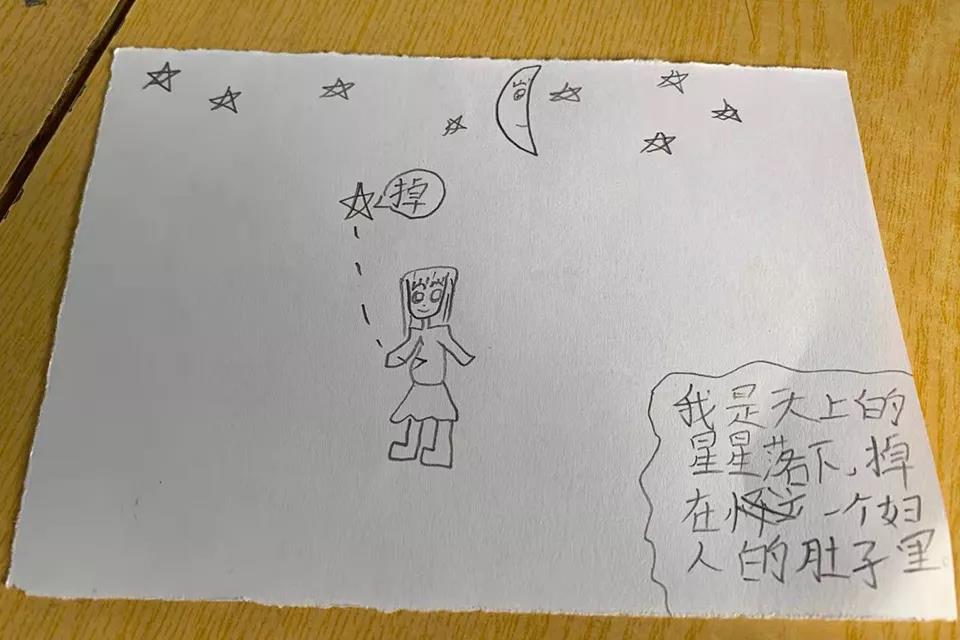 掉
我是天上的
星星落下,掉
在一个妇
人的肚子里。